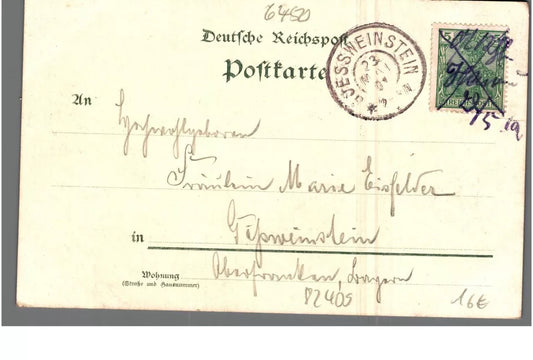 6450
Deutsche Reichspost
Postkarte
GOESSWEINSTEIN
23
An
Hochwohlgeboren
Fräulein Marie Eisfelder
in Gößweinstein
Oberfranken, Bayern
Wohnung
(Straße und Hausnummer)
P2405
16€